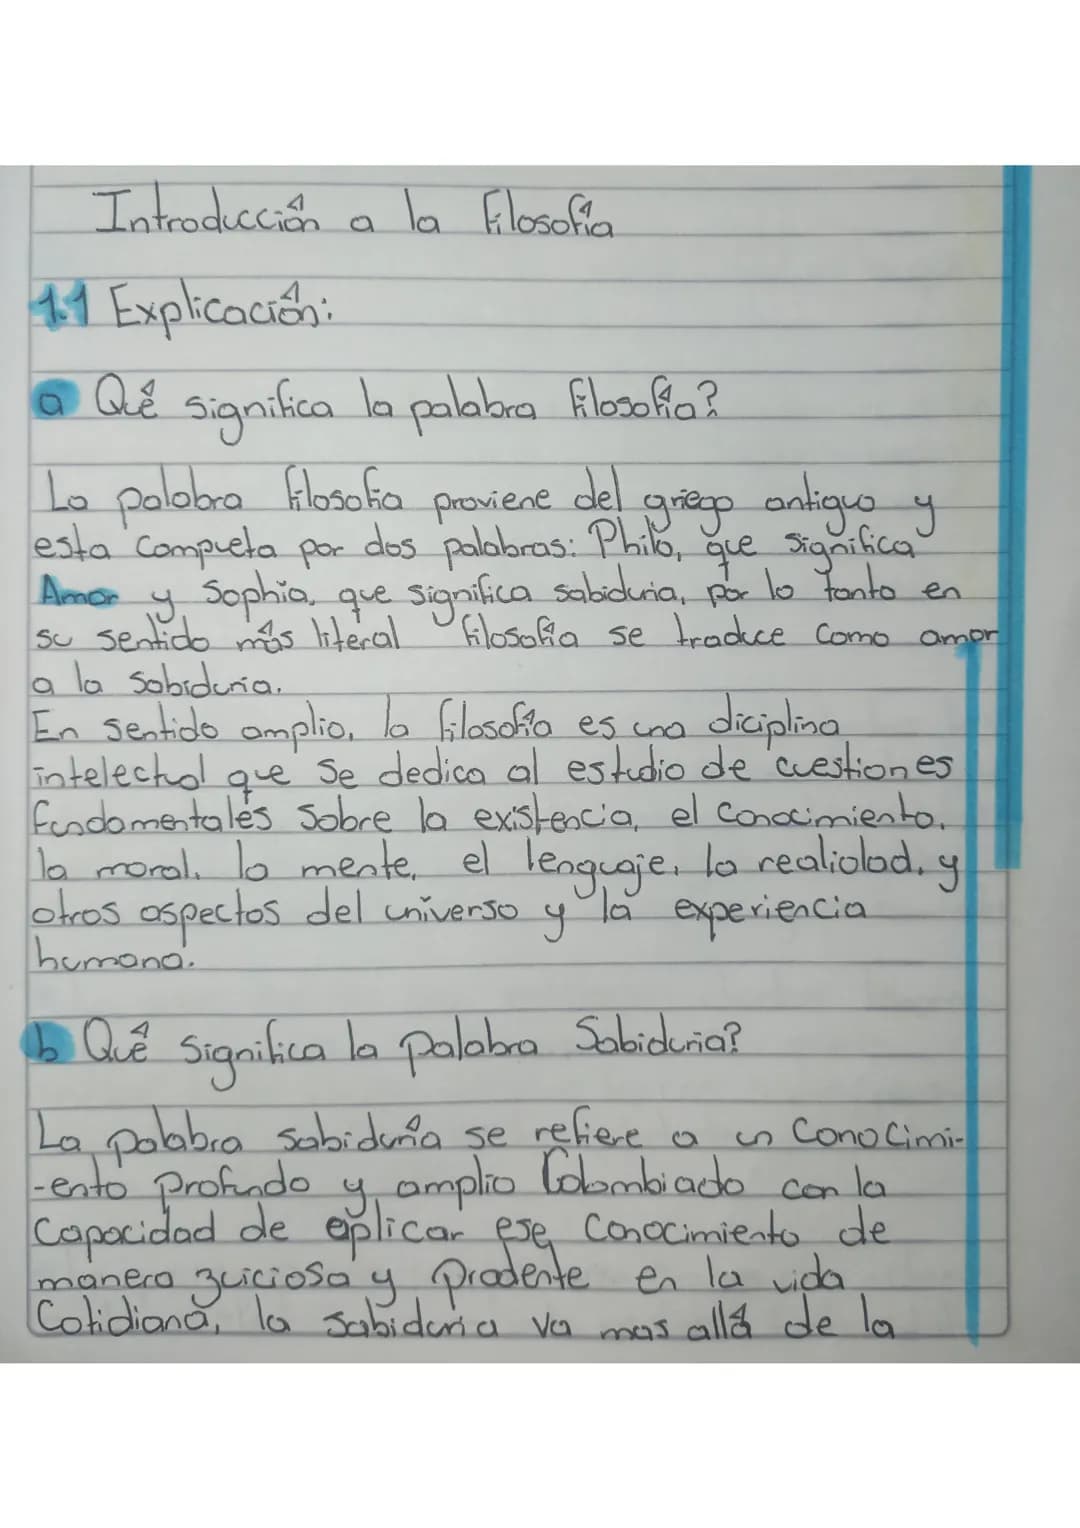 Introducción a la Filosofía
1.1 Explicación:
a Qué significa la palabra Filosofía?
La palabra filosofia proviene del griego antiguo y
esta compueta por dos palabras: Philo, que significa
Amor y Sophia, que significa sabiduria, por lo tanto en
su sentido más literal filosofía se traduce como amor
a la sabiduria.
En sentido amplio, la filosofía es una diciplina
intelectual que se dedica al estudio de cuestiones
fundamentales sobre la existencia, el conocimiento,
la moral, la mente, el lenguaje, la realidad, y
otros aspectos del universo y la experiencia
humana.
b Qué significa la palabra Sabiduria?
La palabra sabiduría se refiere a un conocimi-
-ento profundo y amplio con la
capacidad de aplicar ese conocimiento de
manera zuiciosa y prodente en la vida
Cotidiana, la sabiduria va mas allá de la